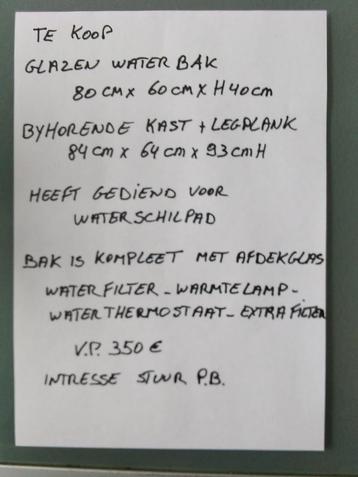 TE KOOP
GLAZEN WATER BAK
80 cm x 60 cm x H 40 cm
BYHORENDE KAST + LEGPLANK
84 cm x 64 cm x 93 cm H
HEEFT GEDIEND VOOR
WATERSCHILPAD
BAK IS KOMPLEET MET AFDEKGLAS
WATERFILTER - WARMTELAMP -
WATERTHERMOSTAAT - EXTRA FILTER
V.P. 350 €
INTRESSE STUUR P.B.